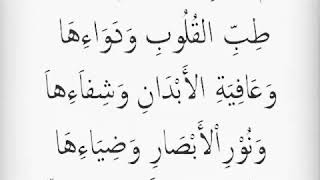 طِبِّ القُلُوبِ وَدَوَاءِهَا
وَعَافِيَةِ الأَبْدَانِ وَشِفَاءِهَا
وَنُوْرِ اْلأَبْصَارِ وَضِيَاءِهَا